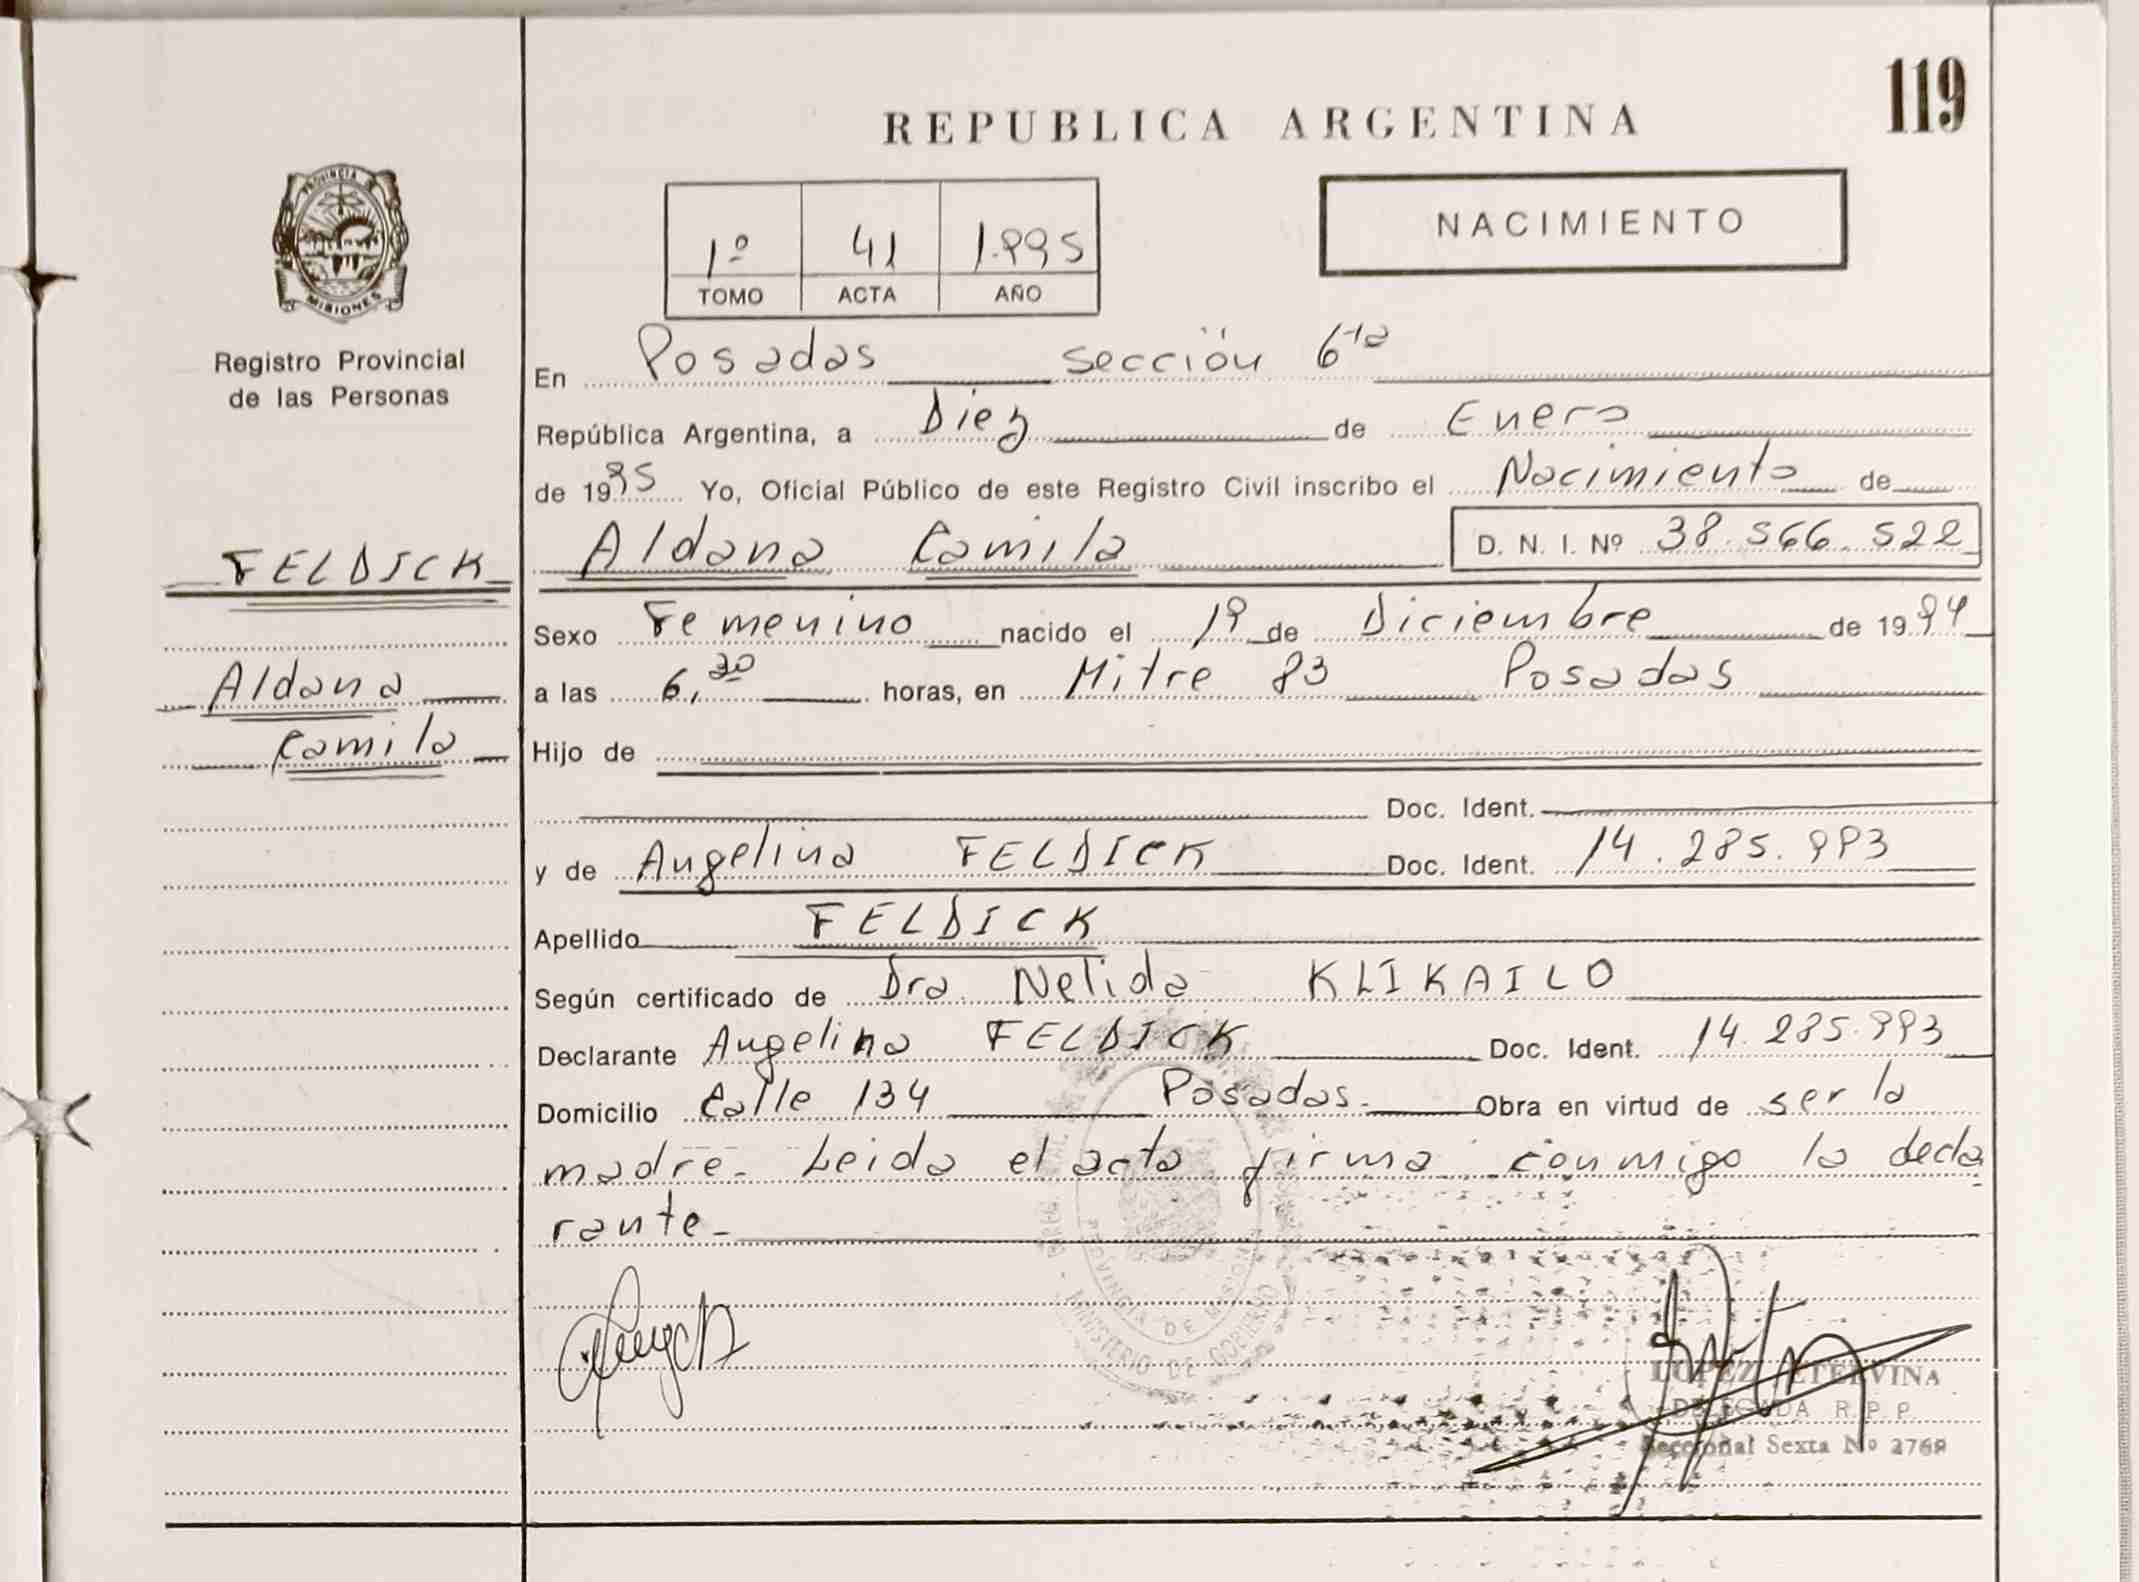 119
REPUBLICA ARGENTINA
NACIMIENTO
1º 41 1.995
TOMO ACTA AÑO
PROVINCIA DE
MISIONES
Registro Provincial
de las Personas
FELDICK
Aldana
Camila
En Posadas sección 6ta
República Argentina, a Diez de Enero
de 1995 Yo, Oficial Público de este Registro Civil inscribo el Nacimiento de
Aldana Camila D. N. I. Nº 38.566.522
Sexo Femenino nacido el 19 de Diciembre de 1994
a las 6,30 horas, en Mitre 93 Posadas
Hijo de
Doc. Ident.
y de Angelina FELDICK Doc. Ident. 14.285.993
Apellido FELDICK
Según certificado de Dra Nelida KLIKAILO
Declarante Angelina FELDICK Doc. Ident. 14.285.993
Domicilio Calle 134 Posadas. Obra en virtud de ser la
madre. Leida el acta firma conmigo la decla
rante.
PROVINCIA DE MISIONES
MINISTERIO DE GOBIERNO
LOPEZ ETELVINA
DELEGADA R.P.P
Seccional Sexta Nº